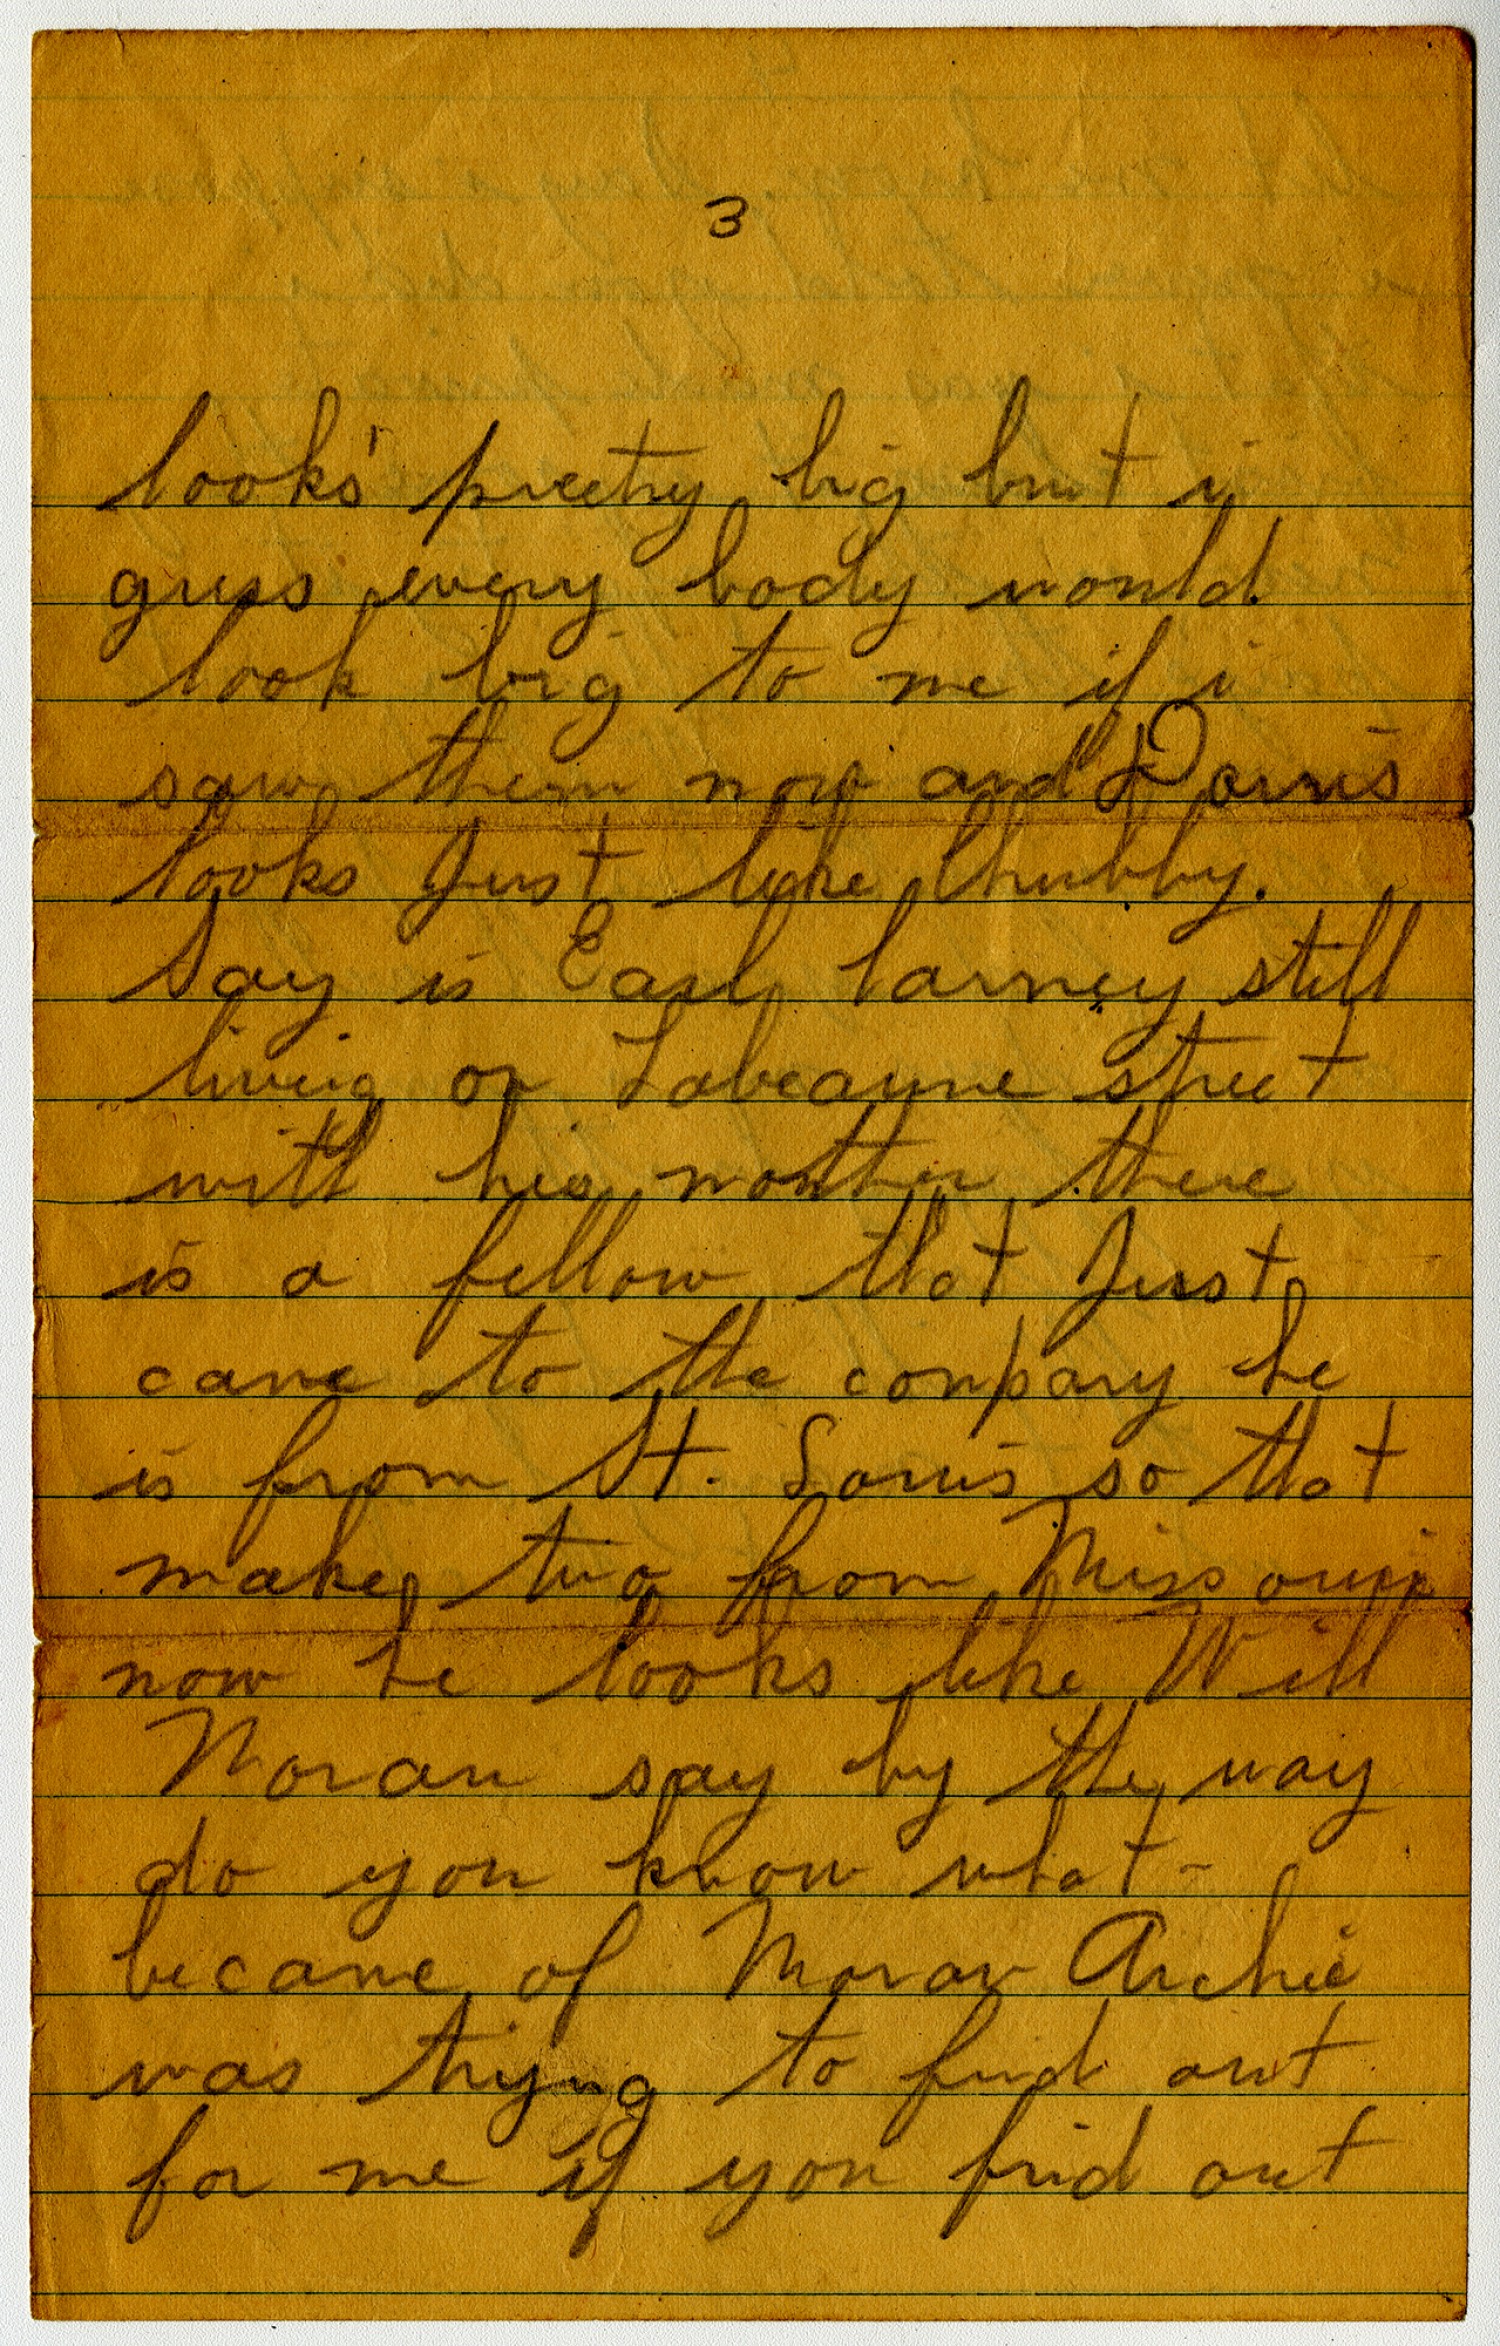 3
looks pretty big but i
guess every body would
look big to me if i
saw them now and Dorris
looks Just like Chubby.
Say is Earl Carney still
living on Labeaume street
with his mother there
is a fellow that Just
came to the company he
is from St. Louis so that
make two from Missouri
now he looks like Will
Moran say by the way
do you know what
became of Moran Archie
was trying to find out
for me if you find out